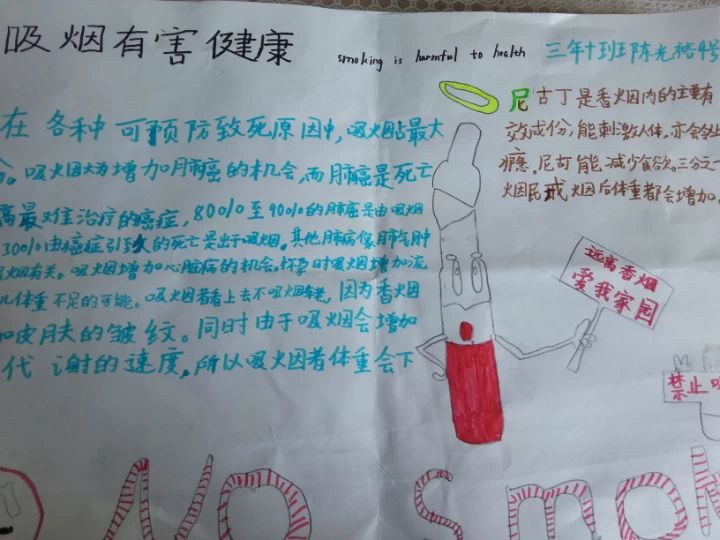 吸烟有害健康
smoking is harmful to health
三年十班 陈光裕 4号
在各种可预防致死原因中,吸烟占最大
分。吸烟大为增加肺癌的机会,而肺癌是死亡
高最难治疗的癌症,80%至90%的肺癌是由吸烟
30%由癌症引致的死亡是出于吸烟。其他肺病像肺气肿
吸烟有关。吸烟增加心脏病的机会。怀孕时吸烟增加流
儿体重不足的可能。吸烟者看上去不吸烟老,因为香烟
加皮肤的皱纹。同时由于吸烟会增加
代谢的速度,所以吸烟者体重会下
尼古丁是香烟内的主要有
效成份,能刺激人体,亦会
瘾。尼古丁能减少食欲。三分之一
烟民戒烟后体重都会增加。
远离香烟
爱我家园
禁止吸
NO Smok